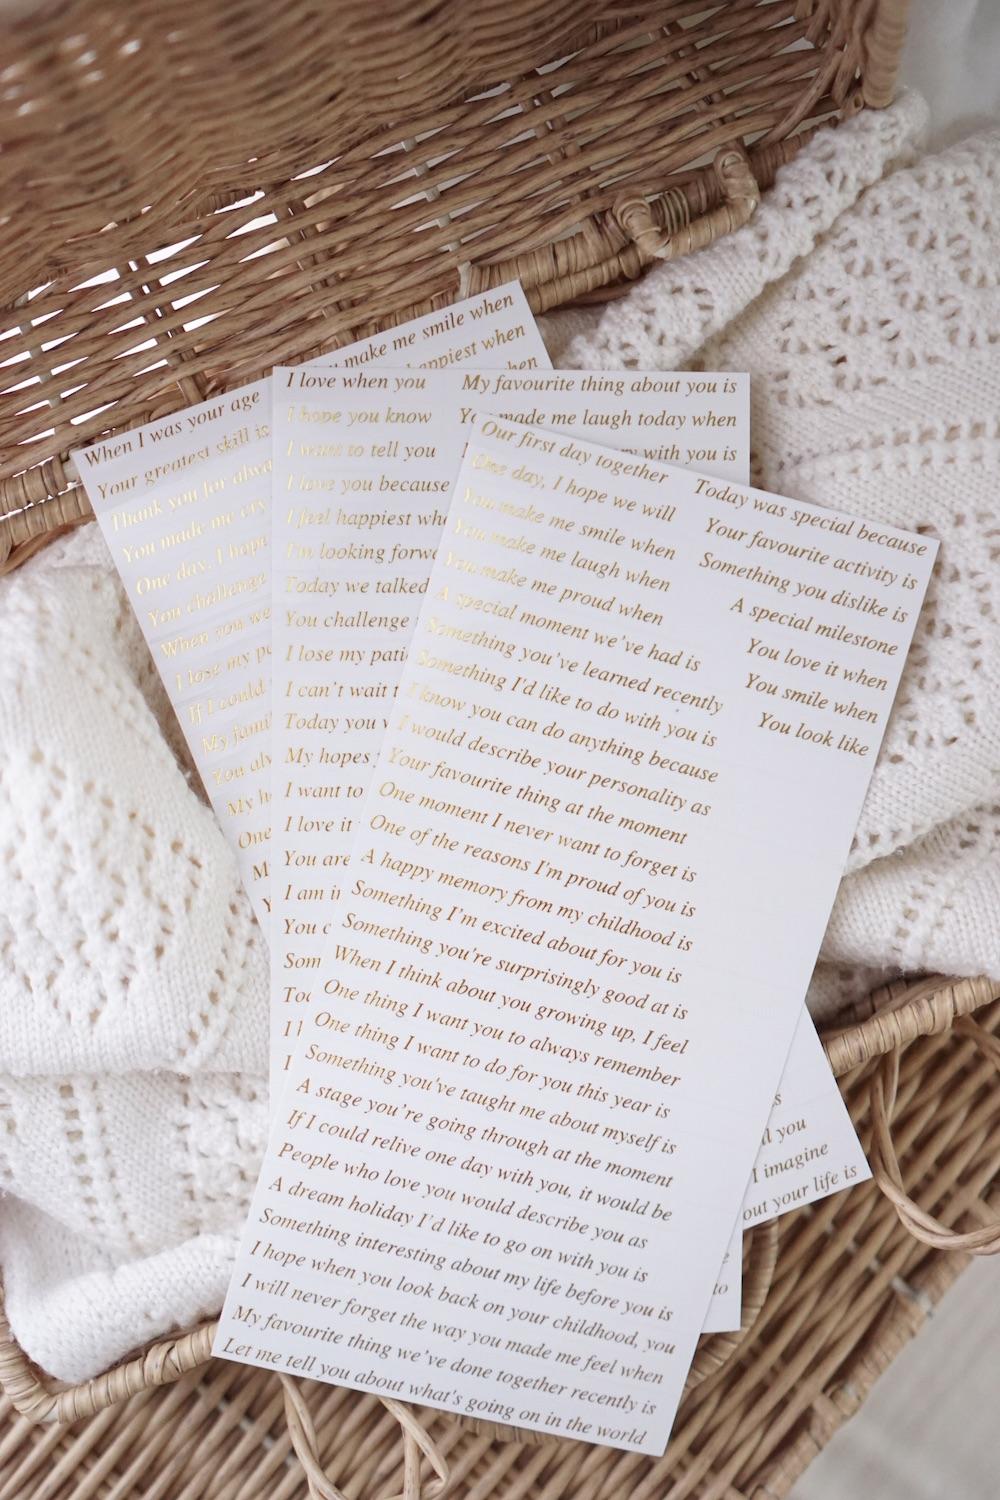 make me smile when
happiest when
when
When I was your age
Your greatest skill is
Thank you for alwa
You made me cry
One day, I hope
You challenge
When you we
I lose my pa
If I could
My fami
You alw
My h
One
M
Y
out your life is
I imagine
you
I love when you
I hope you know
I want to tell you
I love you because
I feel happiest whe
I'm looking forwa
Today we talked
You challenge
I lose my pati
I can't wait t
Today you w
My hopes
I want to
I love it
You are
I am in
You c
Som
Too
I
I
My favourite thing about you is
You made me laugh today when
with you is
to
Our first day together
One day, I hope we will
You make me smile when
You make me laugh when
You make me proud when
A special moment we've had is
Something you've learned recently
Something I'd like to do with you is
I know you can do anything because
I would describe your personality as
Your favourite thing at the moment
One moment I never want to forget is
One of the reasons I'm proud of you is
A happy memory from my childhood is
Something I'm excited about for you is
Something you're surprisingly good at is
When I think about you growing up, I feel
One thing I want you to always remember
One thing I want to do for you this year is
Something you've taught me about myself is
A stage you're going through at the moment
If I could relive one day with you, it would be
People who love you would describe you as
A dream holiday I'd like to go on with you is
Something interesting about my life before you is
I hope when you look back on your childhood, you
I will never forget the way you made me feel when
My favourite thing we've done together recently is
Let me tell you about what's going on in the world
Today was special because
Your favourite activity is
Something you dislike is
A special milestone
You love it when
You smile when
You look like